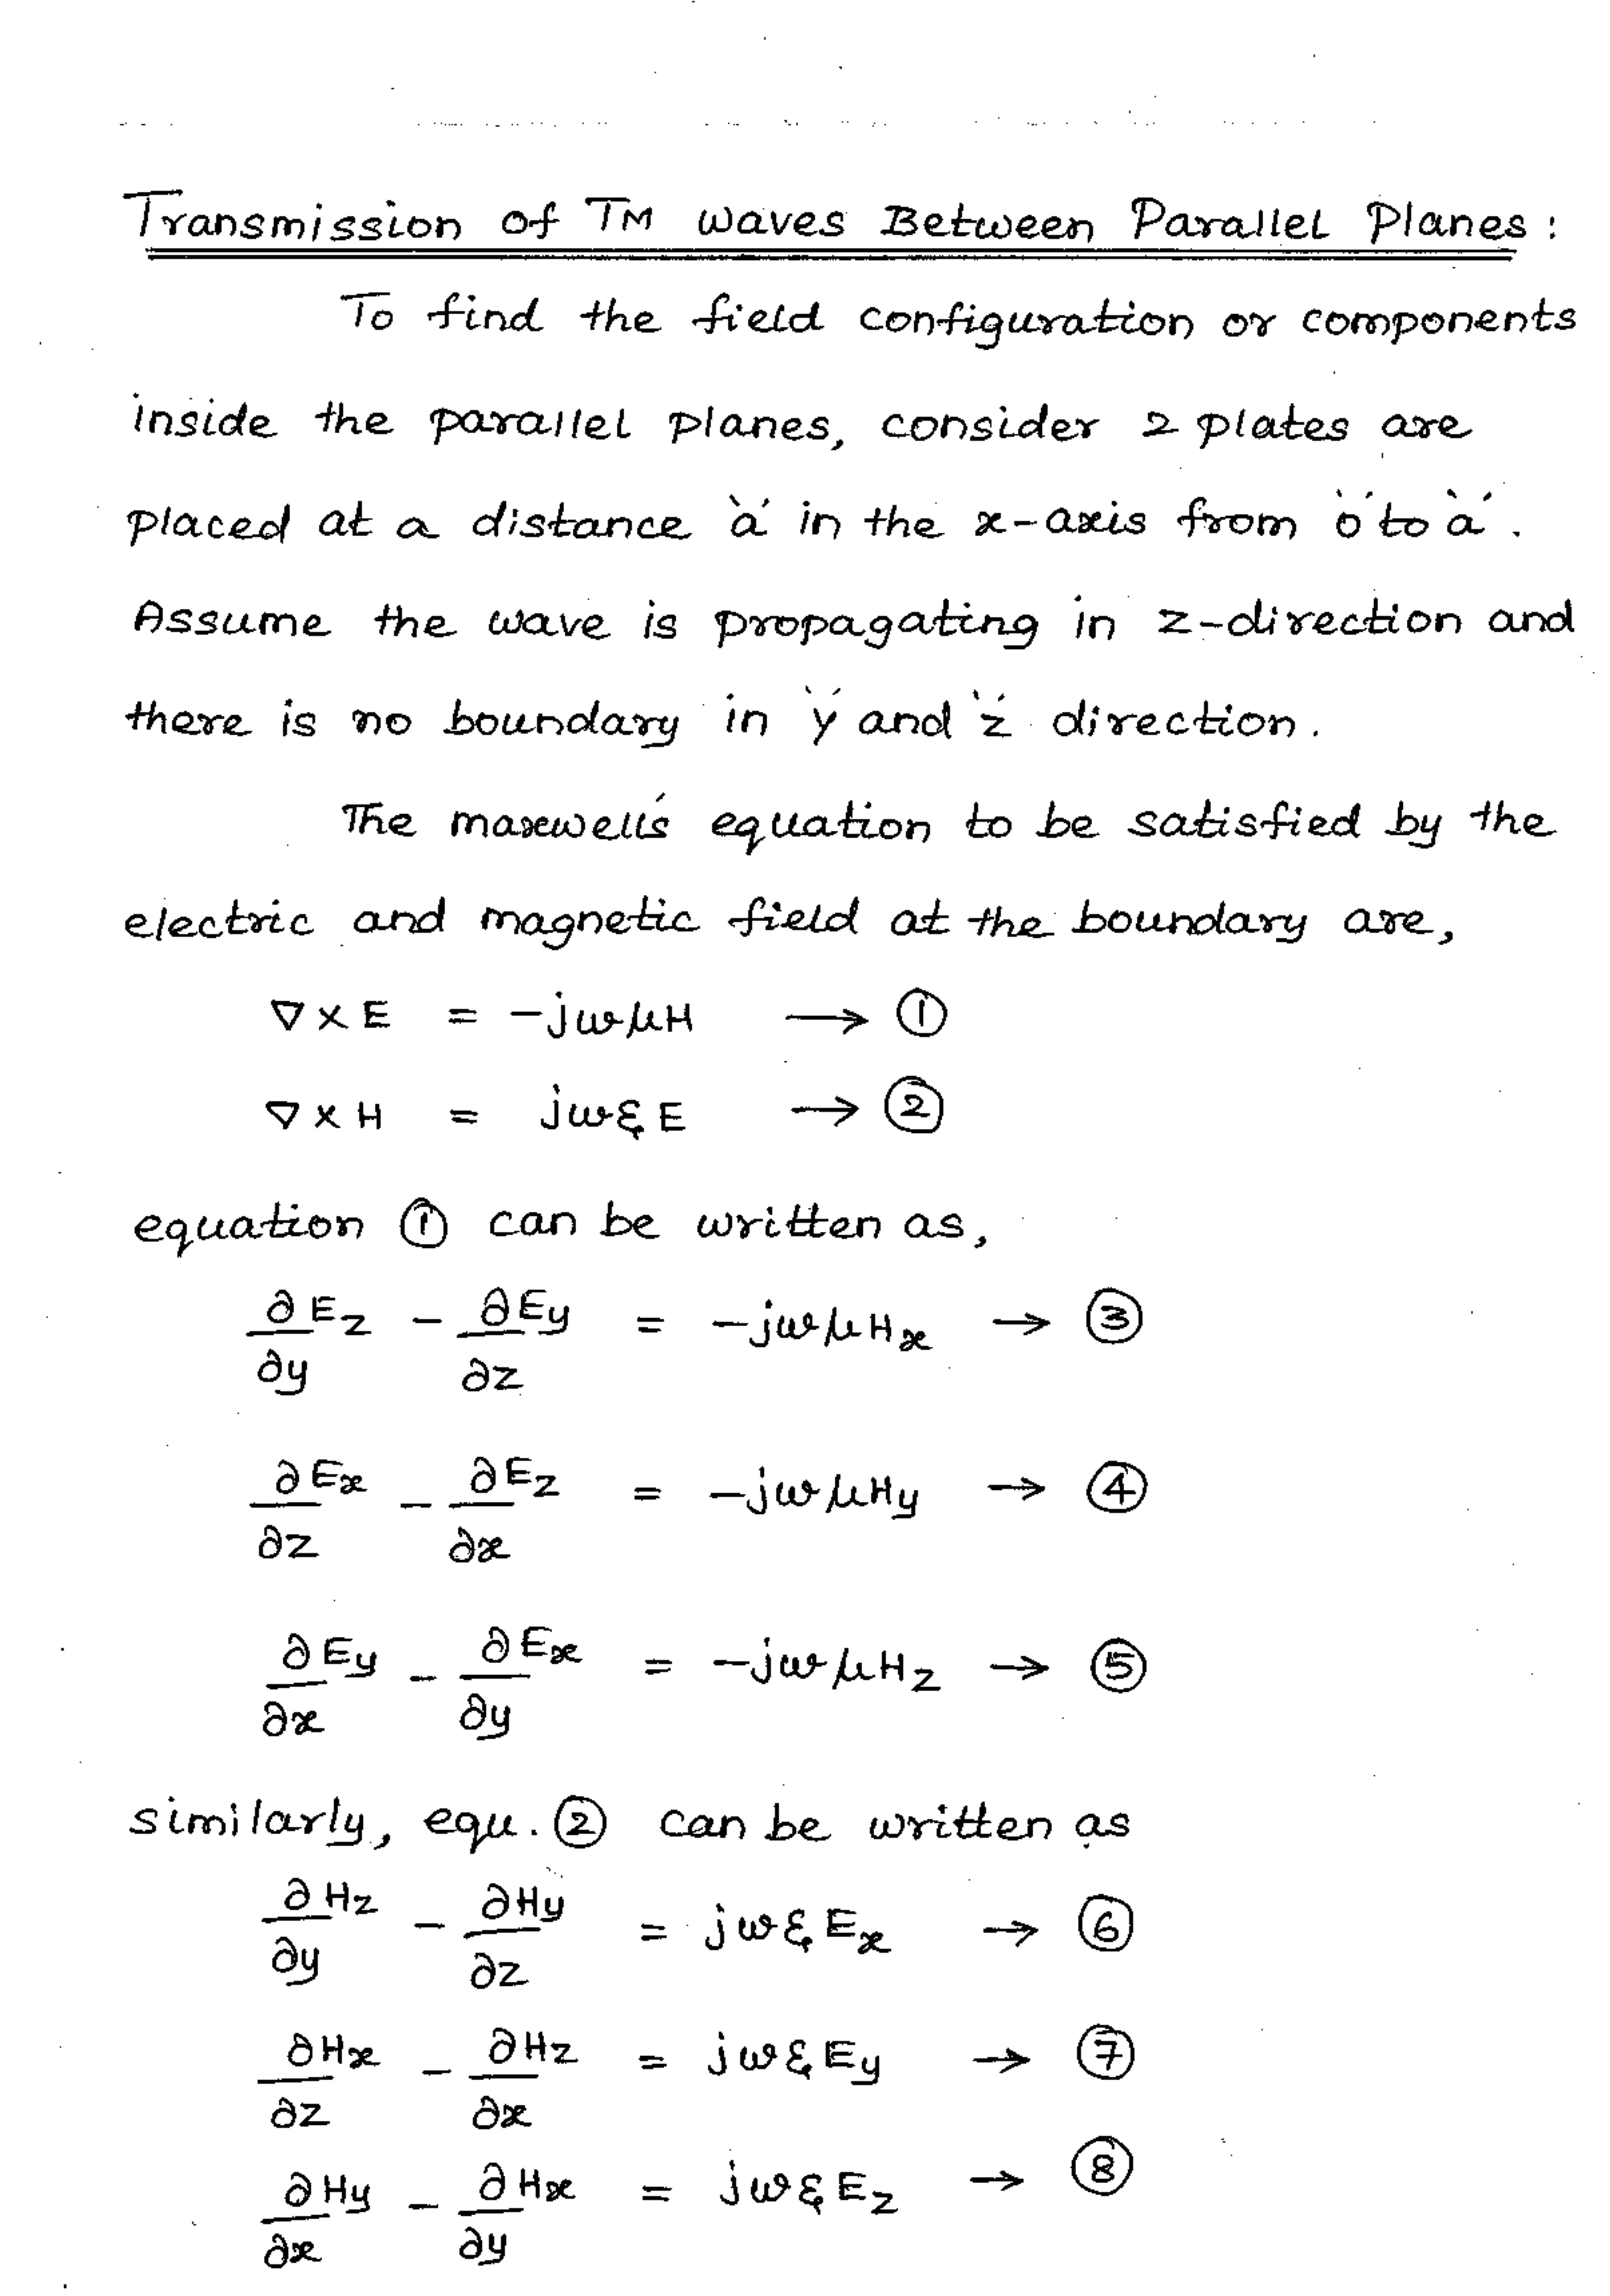 Transmission of TM waves Between Parallel Planes :
To find the field configuration or components
inside the parallel planes, consider 2 plates are
placed at a distance 'a' in the x-axis from 'o' to 'a'.
Assume the wave is propagating in z-direction and
there is no boundary in 'y' and 'z' direction.
The maxwell's equation to be satisfied by the
electric and magnetic field at the boundary are,
∇ × E = -jωμH → ①
∇ × H = jωξE → ②
equation ① can be written as,
∂Ez/∂y - ∂Ey/∂z = -jωμHx → ③
∂Ex/∂z - ∂Ez/∂x = -jωμHy → ④
∂Ey/∂x - ∂Ex/∂y = -jωμHz → ⑤
similarly, equ. ② can be written as
∂Hz/∂y - ∂Hy/∂z = jωξEx → ⑥
∂Hx/∂z - ∂Hz/∂x = jωξEy → ⑦
∂Hy/∂x - ∂Hx/∂y = jωξEz → ⑧